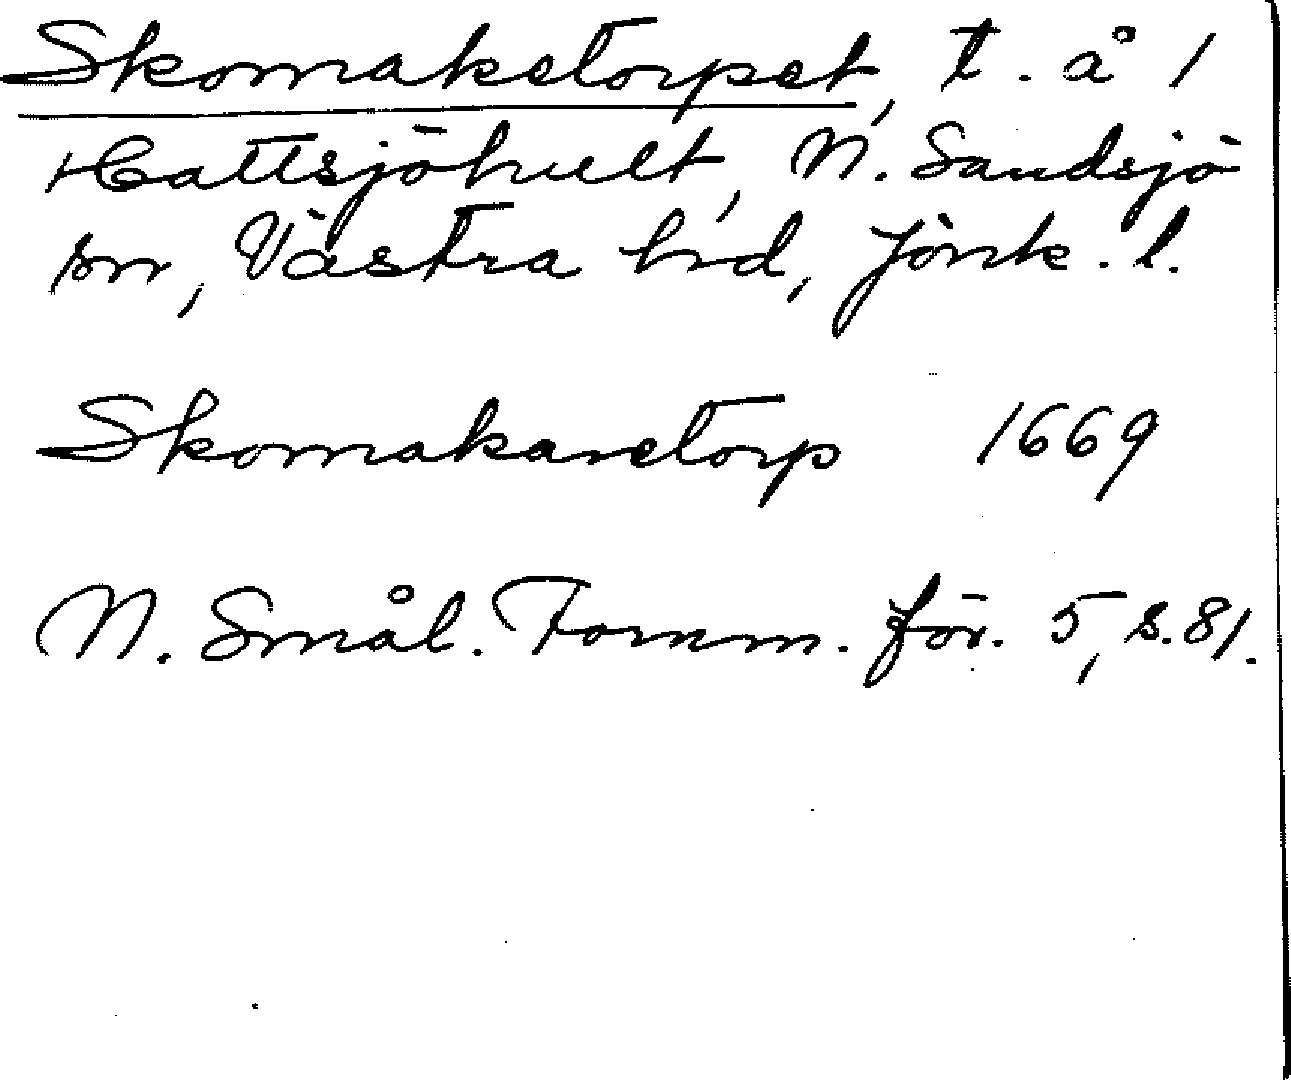 Skomaketorpet, t. å 1
Hattsjöhult, N. Sandsjö
sn, Västra hd, Jönk. l.
Skomakaretorp 1669
N. Smål. Fornm. för. 5, s. 81.